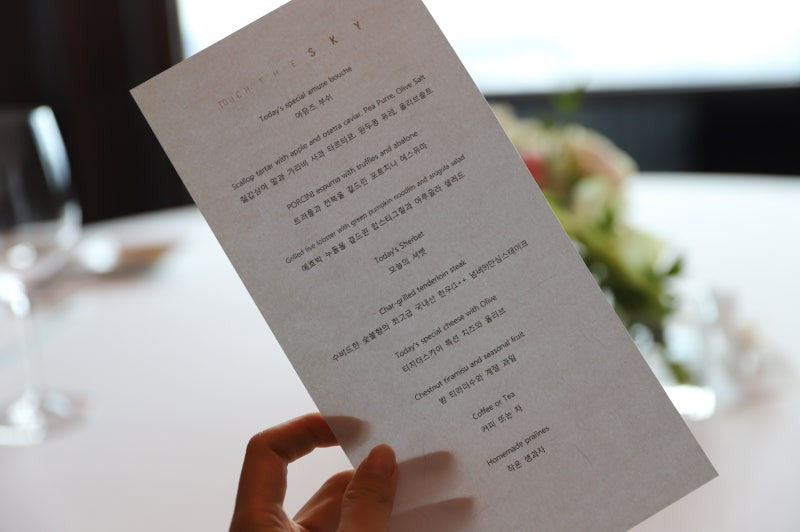 TOUCH THE SKY
Today's special amuse bouche
아뮤즈 부쉬
Scallop tartar with apple and osetra caviar, Pea Purre, Olive Salt
철갑상어 알과 가리비 사과 타르타르, 완두콩 퓨레, 올리브솔트
PORCINI espuma with truffles and abalone
트러플과 전복을 곁드린 포르치니 에스퓨마
Grilled live lobster with green pumpkin noodles and arugula salad
애호박 누들을 곁드린 랍스타그릴과 아루굴라 샐러드
Today's Sherbet
오늘의 셔벳
Char-grilled tenderloin steak
수비드한 숯불향의 최고급 국내산 한우(1++ 넘버9)안심스테이크
Today's special cheese with Olive
터치더스카이 특선 치즈와 올리브
Chestnut tiramisu and seasonal fruit
밤 티라미수와 계절 과일
Coffee or Tea
커피 또는 차
Homemade pralines
작은 생과자